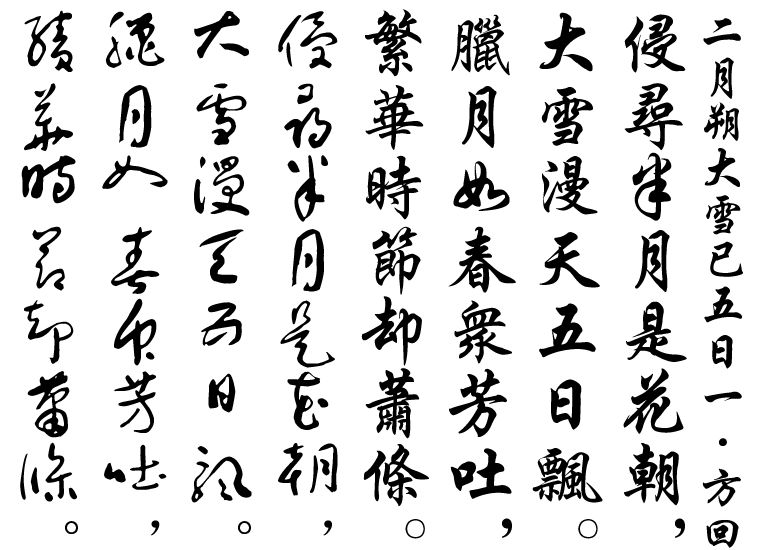 二月朔大雪已五日一·方回
侵尋半月是花朝，
大雪漫天五日飄。
臘月如春衆芳吐，
繁華時節却蕭條。
侵尋半月是花朝，
大雪漫天五日飄。
臘月如春衆芳吐，
繁華時節却蕭條。